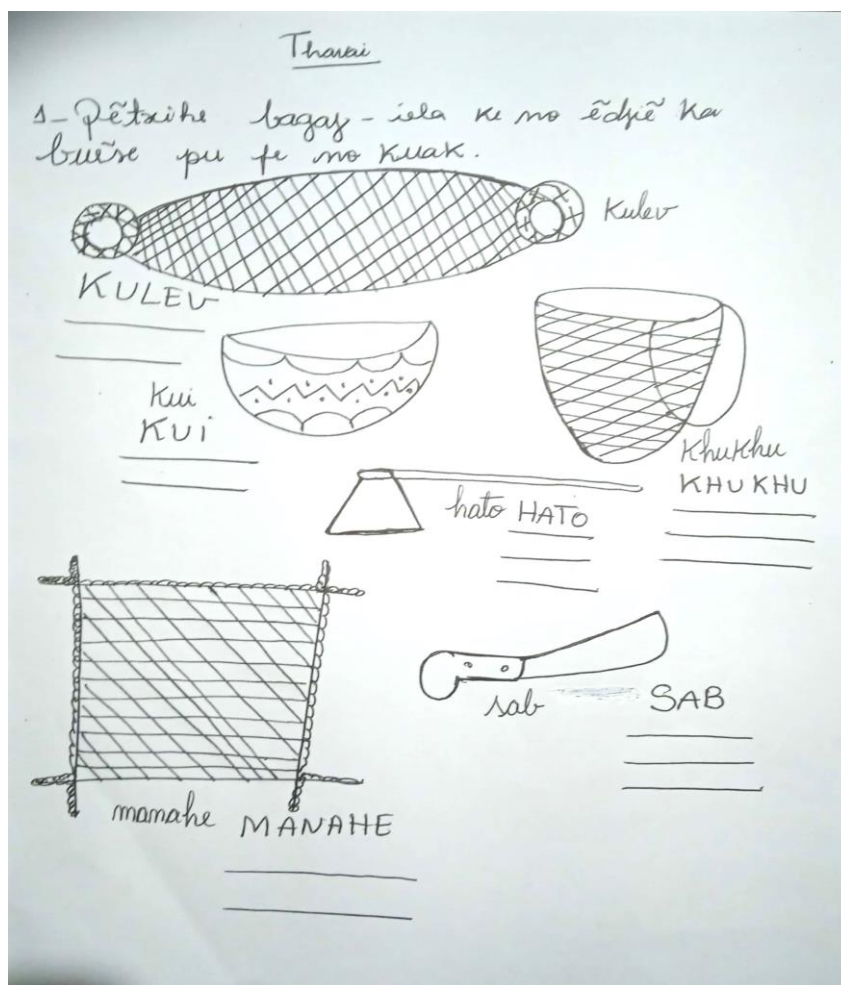 Thavai
1- Pẽtxihe bagaj-iela ke no ẽdjẽ ka
buẽse pu fe no kuak.
Kulev
KULEV
Kui
KUI
KhuKhu
KHUKHU
hato HATO
sab SAB
manahe MANAHE